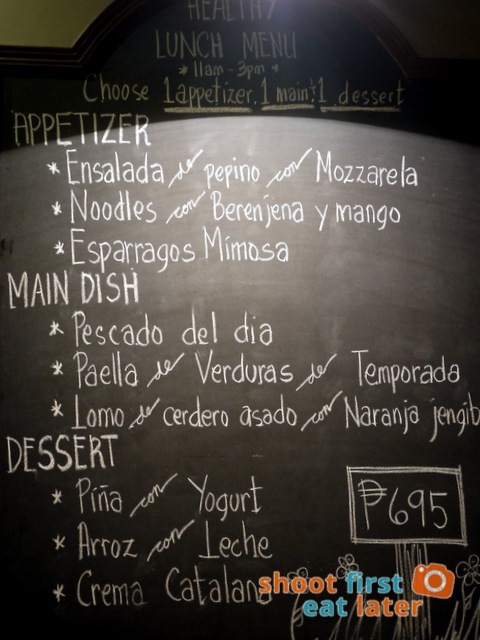 HEALTHY
LUNCH MENU
* 11am - 3pm *
Choose 1 appetizer, 1 main & 1 dessert
APPETIZER
* Ensalada de pepino con Mozzarela
* Noodles con Berenjena y mango
* Esparragos Mimosa
MAIN DISH
* Pescado del dia
* Paella de Verduras de Temporada
* Lomo de cerdero asado con Naranja jengib
DESSERT
* Piña con Yogurt
* Arroz con Leche
* Crema Catalana
₱695
shoot first
eat later